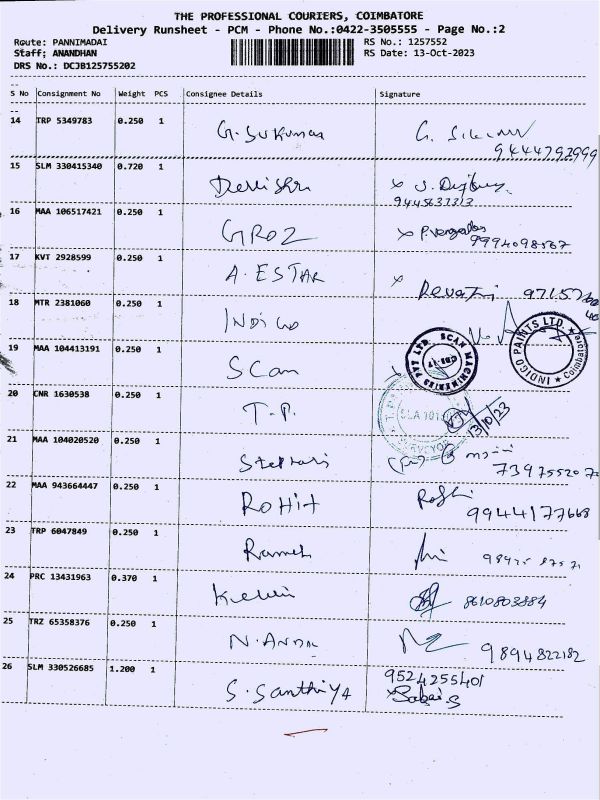 THE PROFESSIONAL COURIERS, COIMBATORE
Delivery Runsheet - PCM - Phone No.:0422-3505555 - Page No.:2
Route: PANNIMADAI RS No.: 1257552
Staff; ANANDHAN RS Date: 13-Oct-2023
DRS No.: DCJB125755202
S No Consignment No Weight PCS Consignee Details Signature
14 TRP 5349783 0.250 1 G. Sukumar
9444792999
15 SLM 330415340 0.720 1
16 MAA 106517421 0.250 1 GROZ
17 KVT 2928599 0.250 1 A. ESTAR Revathi
18 MTR 2381060 0.250 1 INDiGO INDIGO PAINTS LTD. Coimbatore
19 MAA 104413191 0.250 1 Scan SCAN MACHINERIES PVT LTD. CBE-17
20 CNR 1630538 0.250 1 T.P. SURVEYOR 13/10/23
21 MAA 104020520 0.250 1
22 MAA 943664447 0.250 1 ROHit
9944177668
23 TRP 6047849 0.250 1 Ramesh
24 PRC 13431963 0.370 1 8610803884
25 TRZ 65358376 0.250 1 N. ANAN 9894822182
26 SLM 330526685 1.200 1 S. Santhiya 9524255401